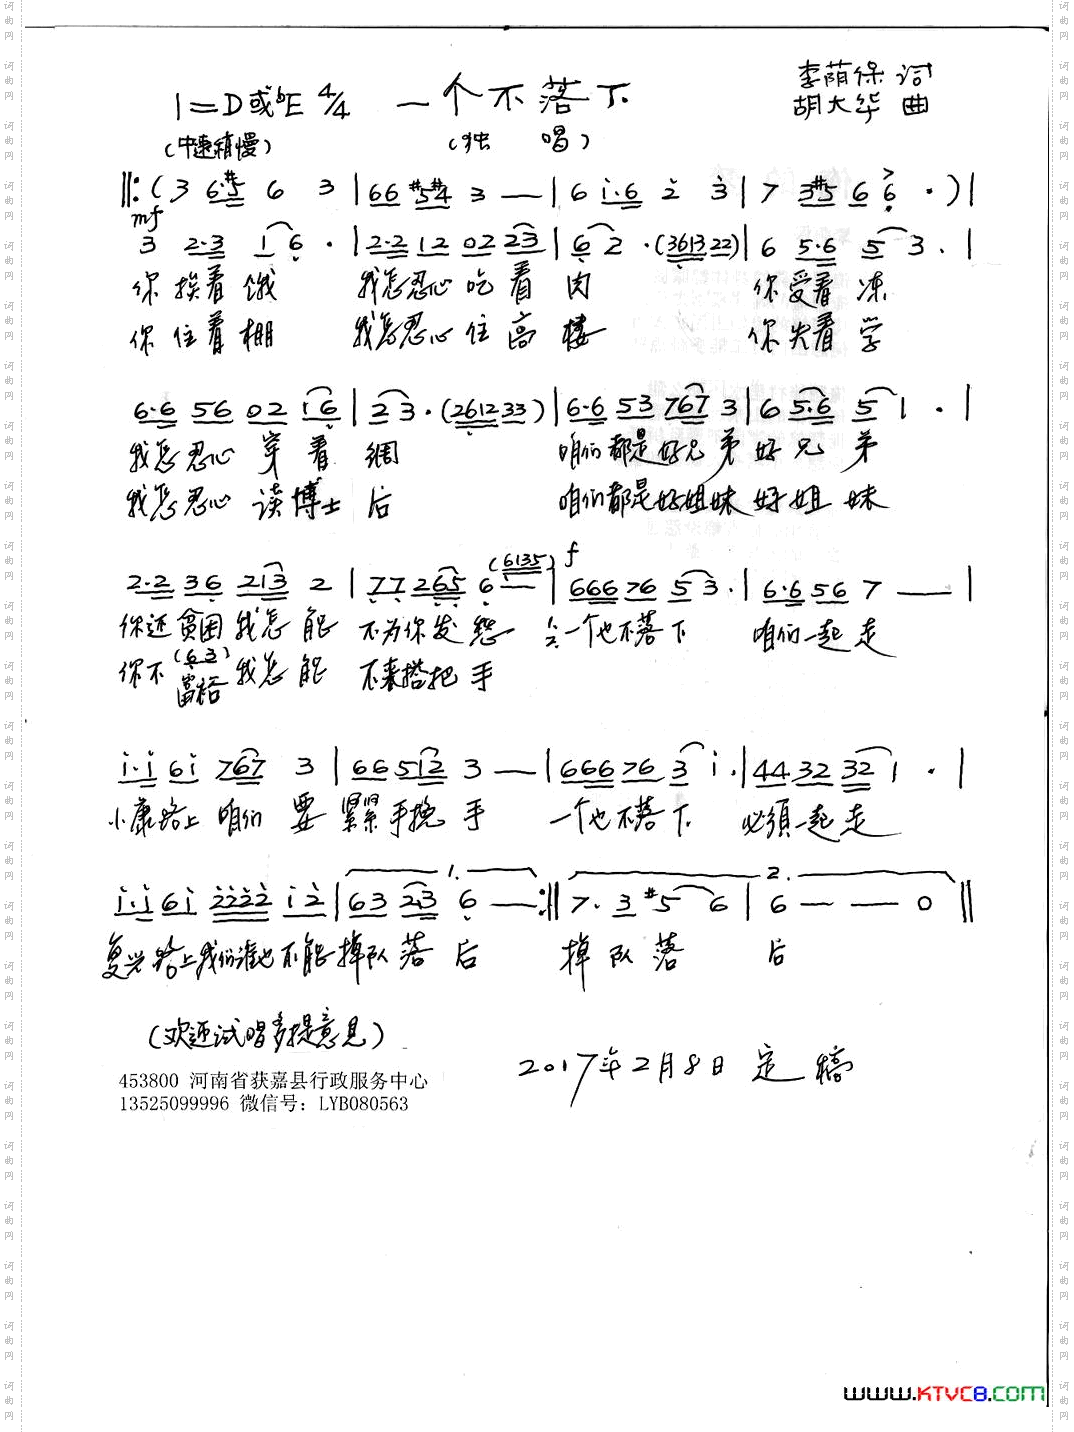 1=D或♭E 4/4 一个不落下
李荫保 词
胡大华 曲
(中速稍慢)
(独 唱)
‖:(3 6·#5 6 3|66 #5#4 3 —|6 i·6 2 3|7 3#5 6 6·)|
mf
3 2·3 1 6·|2·2 12 02 23|6 2·(361322)|6 5·6 5 3.|
你挨着饿 我怎忍心吃着肉 你受着冻
你住着棚 我怎忍心住高楼 你失着学
6·6 56 02 16|23·(261233)|6·6 53 767 3|6 5·6 5 1·|
我怎忍心 穿着绸 咱们都是好兄弟好兄弟
我怎忍心 读博士后 咱们都是好姐妹好姐妹
(6135) f
2·2 36 213 2|77 265 6 —|666 76 5 3.|6·6 56 7 —|
你还贫困我怎能 不为你发愁 1.2.一个也不落下 咱们一起走
你不富裕我怎能 不来搭把手
(63)
i·i 6i 767 3|66512 3 —|666 76 3 i.|44 32 32 1·|
小康路上咱们要紧紧手挽手 一个也不落下 必须一起走
1. 2.
i·i 6i 2222 i2|63 23 6 —:‖7. 3 #5 6|6 — — 0‖
复兴路上我们谁也不能掉队落后 掉队落 后
(欢迎试唱多提意见)
2017年2月8日 定稿
453800 河南省获嘉县行政服务中心
13525099996 微信号：LYB080563
www.KTVC8.com
词曲网